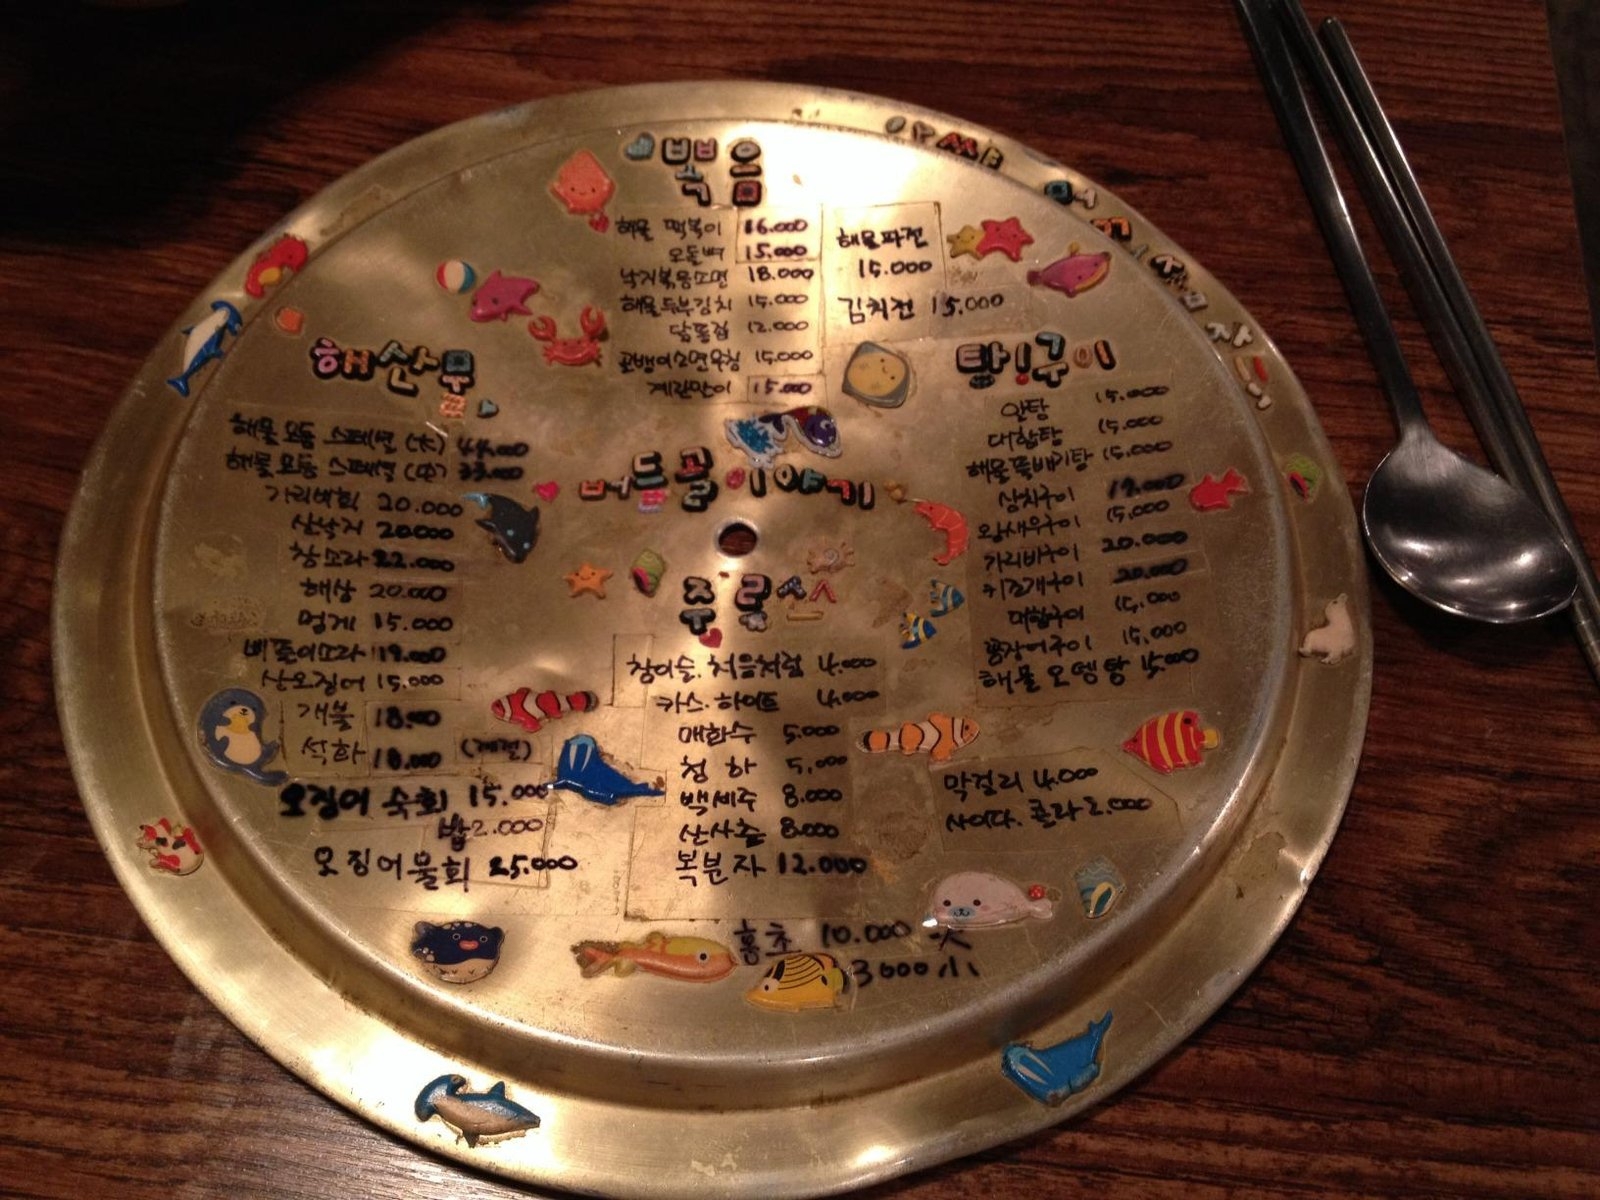 볶음
해물 떡볶이 16.000
오돌뼈 15.000
낙지볶음소면 18.000
해물두부김치 15.000
닭똥집 12.000
골뱅이소면무침 15.000
계란말이 15.000
해물파전
15.000
김치전 15.000
해산물
해물모듬 스페셜 (大) 44.000
해물모듬 스페셜 (小) 33.000
가리비회 20.000
산낙지 20.000
참소라 22.000
해삼 20.000
멍게 15.000
삐뚤이소라 19.000
산오징어 15.000
개불 18.000
석화 18.000 (계절)
오징어 숙회 15.000
밥 2.000
오징어물회 25.000
탕!구이
알탕 15.000
대합탕 15.000
해물뚝배기탕 15.000
삼치구이 19.000
왕새우구이 15.000
가리비구이 20.000
키조개구이 20.000
대합구이 15.000
꼼장어구이 15.000
해물 오뎅탕 15.000
버드골이야기
주류
참이슬.처음처럼 4.000
카스.하이트 4.000
매화수 5.000
청하 5.000
백세주 8.000
산사춘 8.000
복분자 12.000
막걸리 4.000
사이다.콜라 2.000
홍초 10.000 大
3000 小